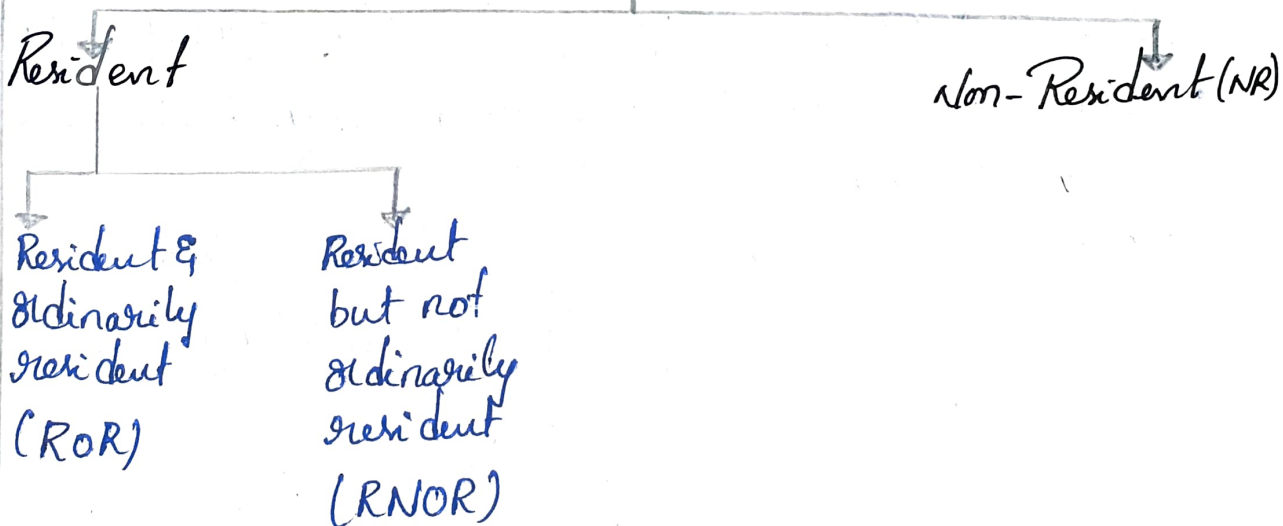 Resident
Non-Resident (NR)
Resident &
ordinarily
resident
(ROR)
Resident
but not
ordinarily
resident
(RNOR)